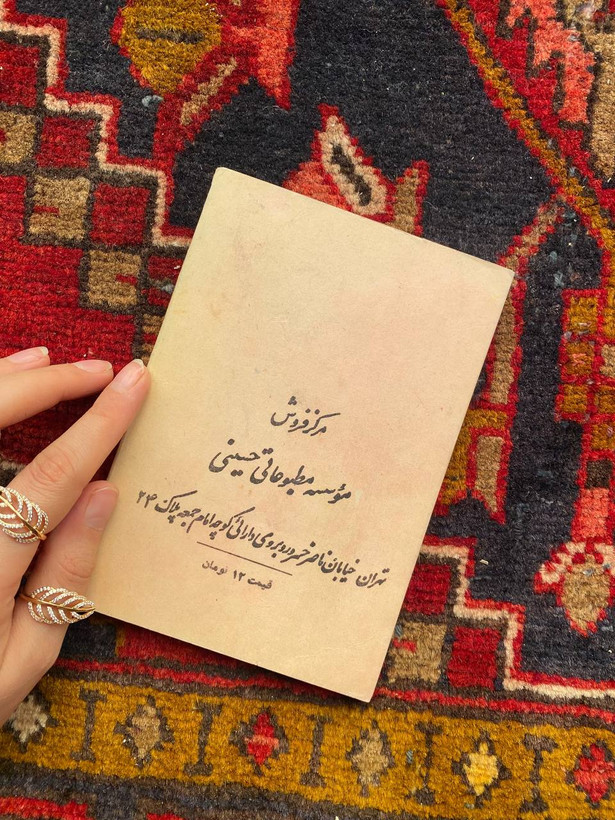 مرکز فروش
مؤسسه مطبوعاتی حسینی
تهران خیابان ناصرخسرو روبروی دارائی کوچه امام جمعه پلاک ۲۴
قیمت ۱۲ تومان